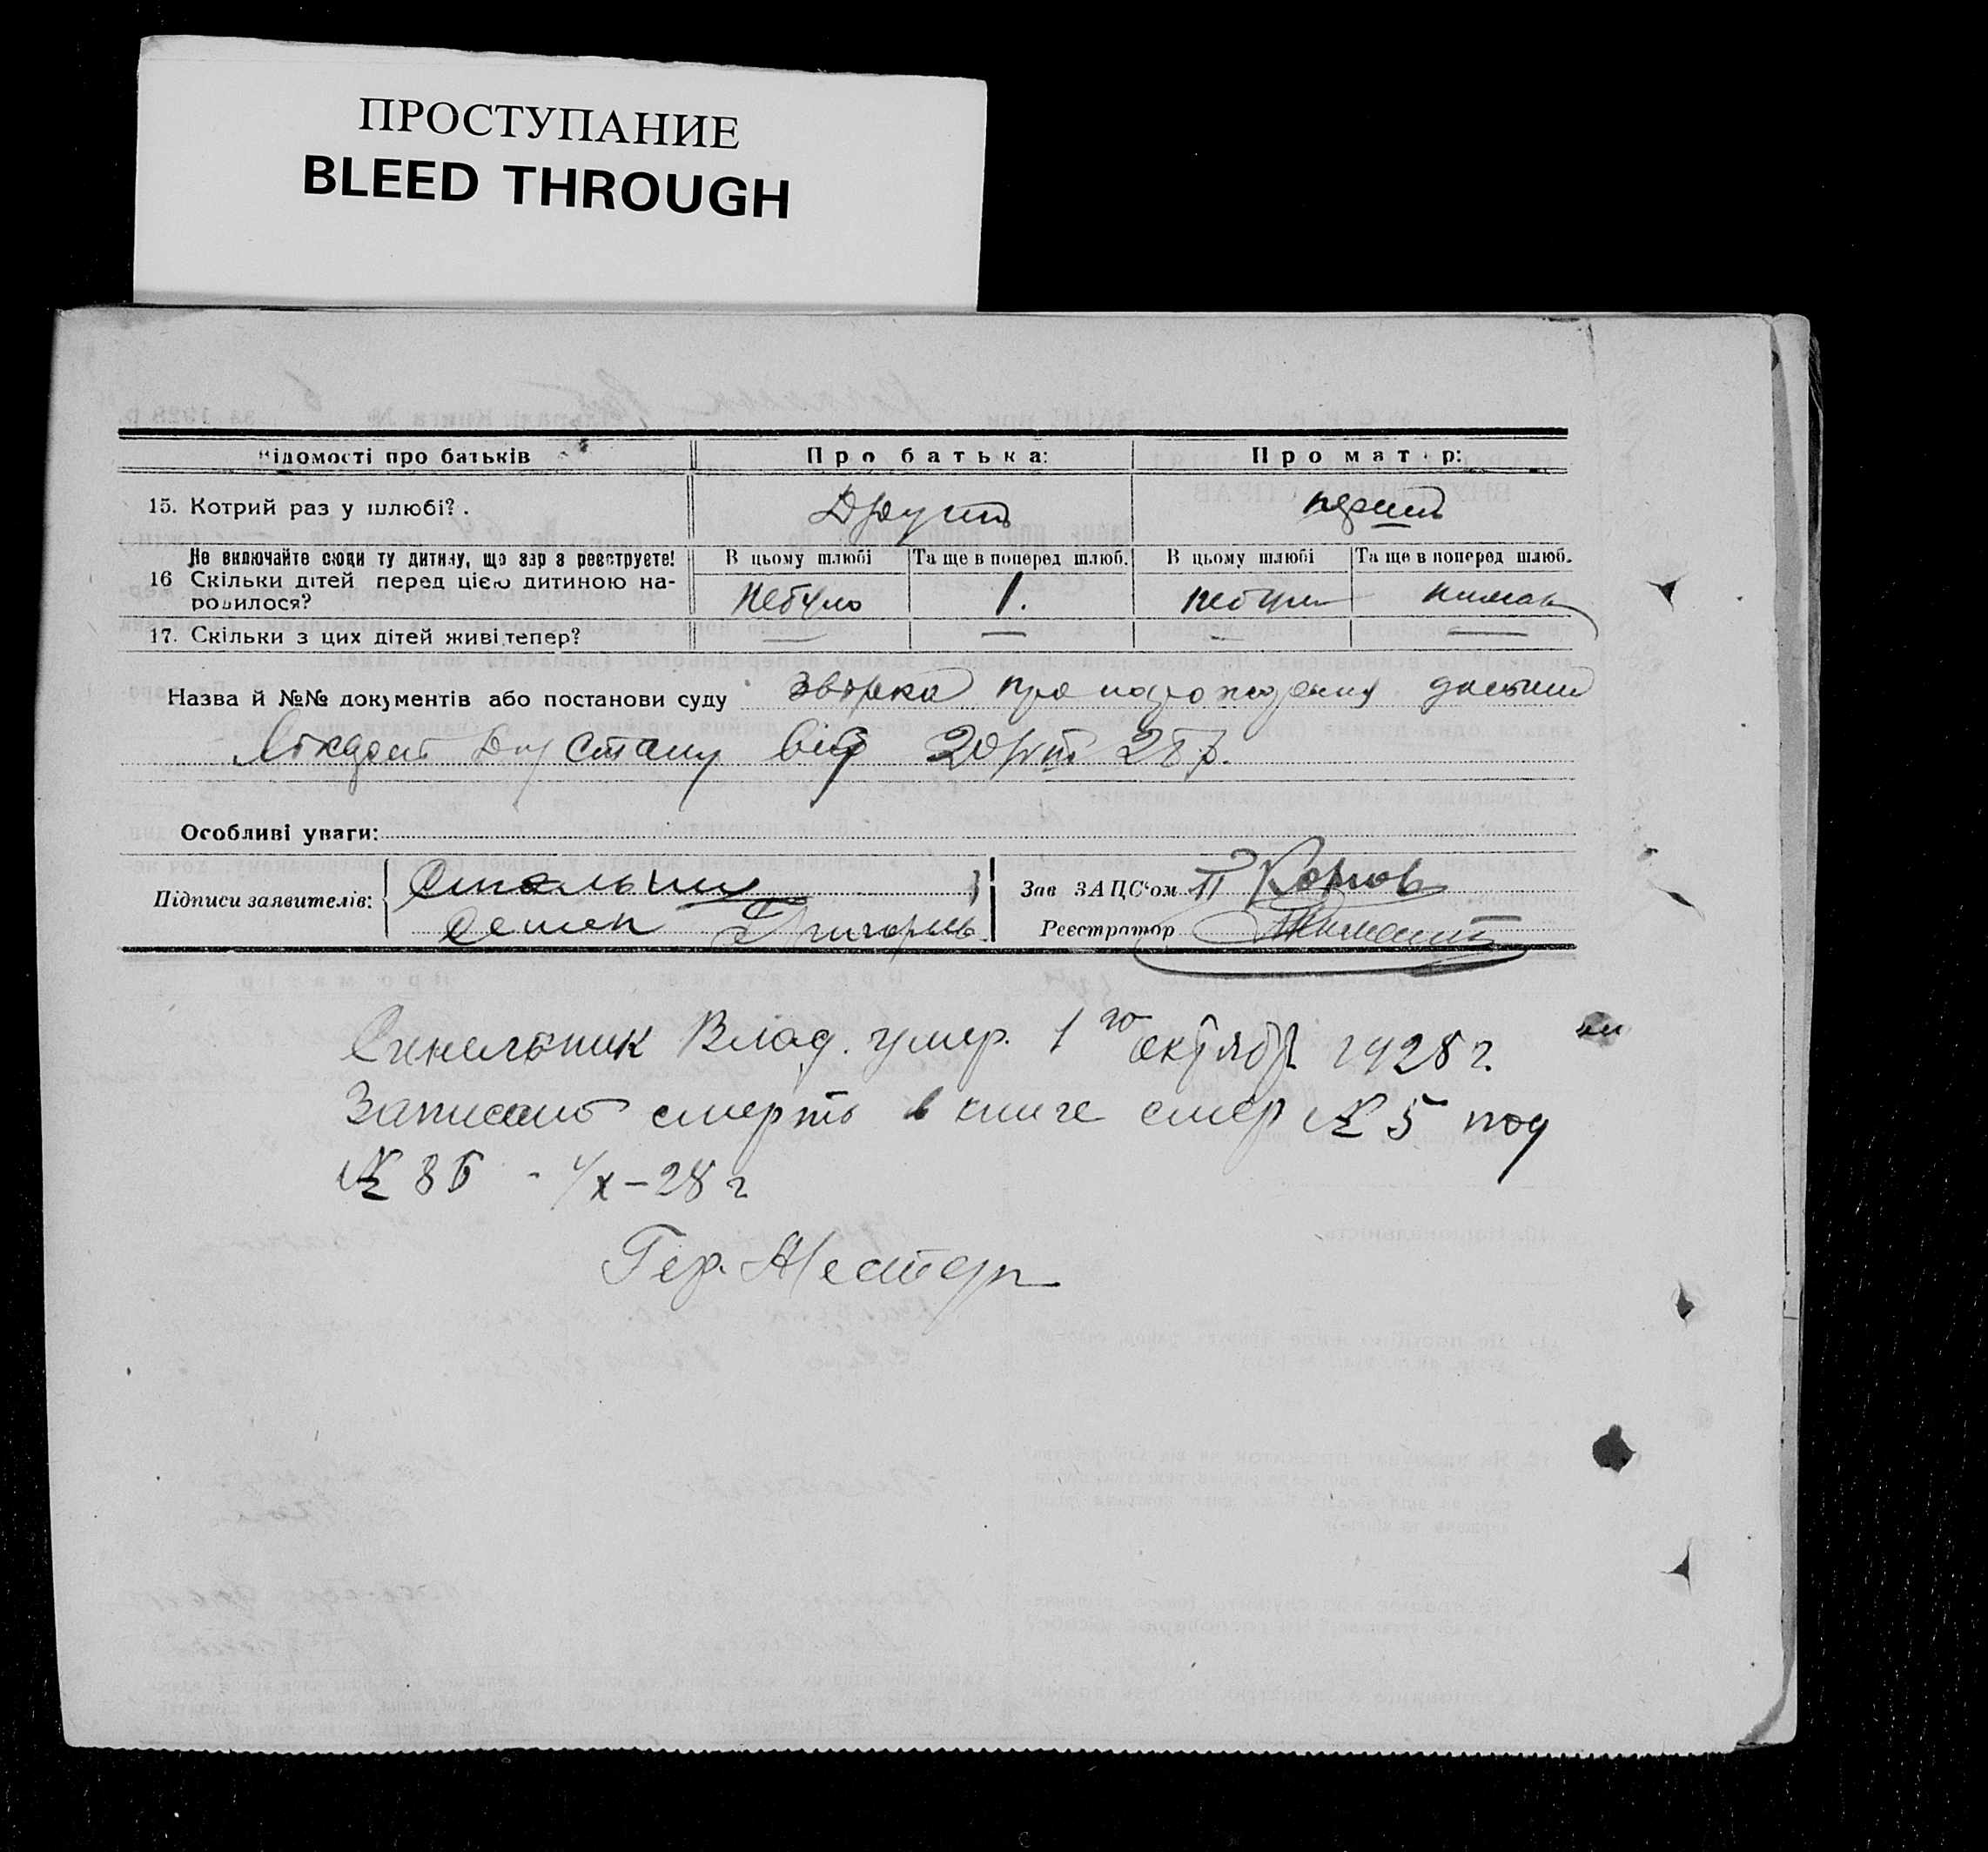 ПРОСТУПАНИЕ
BLEED THROUGH
Відомості про батьків
Про батька:
Про матір:
15. Котрий раз у шлюбі?.
Другий
перший
Не включайте сюди ту дитину, що зараз реєструєте!
16 Скільки дітей перед цією дитиною народилося?
В цьому шлюбі
Та ще в поперед шлюб.
В цьому шлюбі
Та ще в поперед шлюб.
Небуло
1.
небуло
17. Скільки з цих дітей живі тепер?
— — — —
Назва й №№ документів або постанови суду про народження дитини
від 20/VIII 28 р.
Особливі уваги:
Підписи заявителів:
Семен Григорів
Зав ЗАЦС'ом
Реєстратор
Синельник Влад. умер. 1го октября 1928 г.
Записано смерть в книге смер № 5 под
№ 86 - 4/X – 28 г